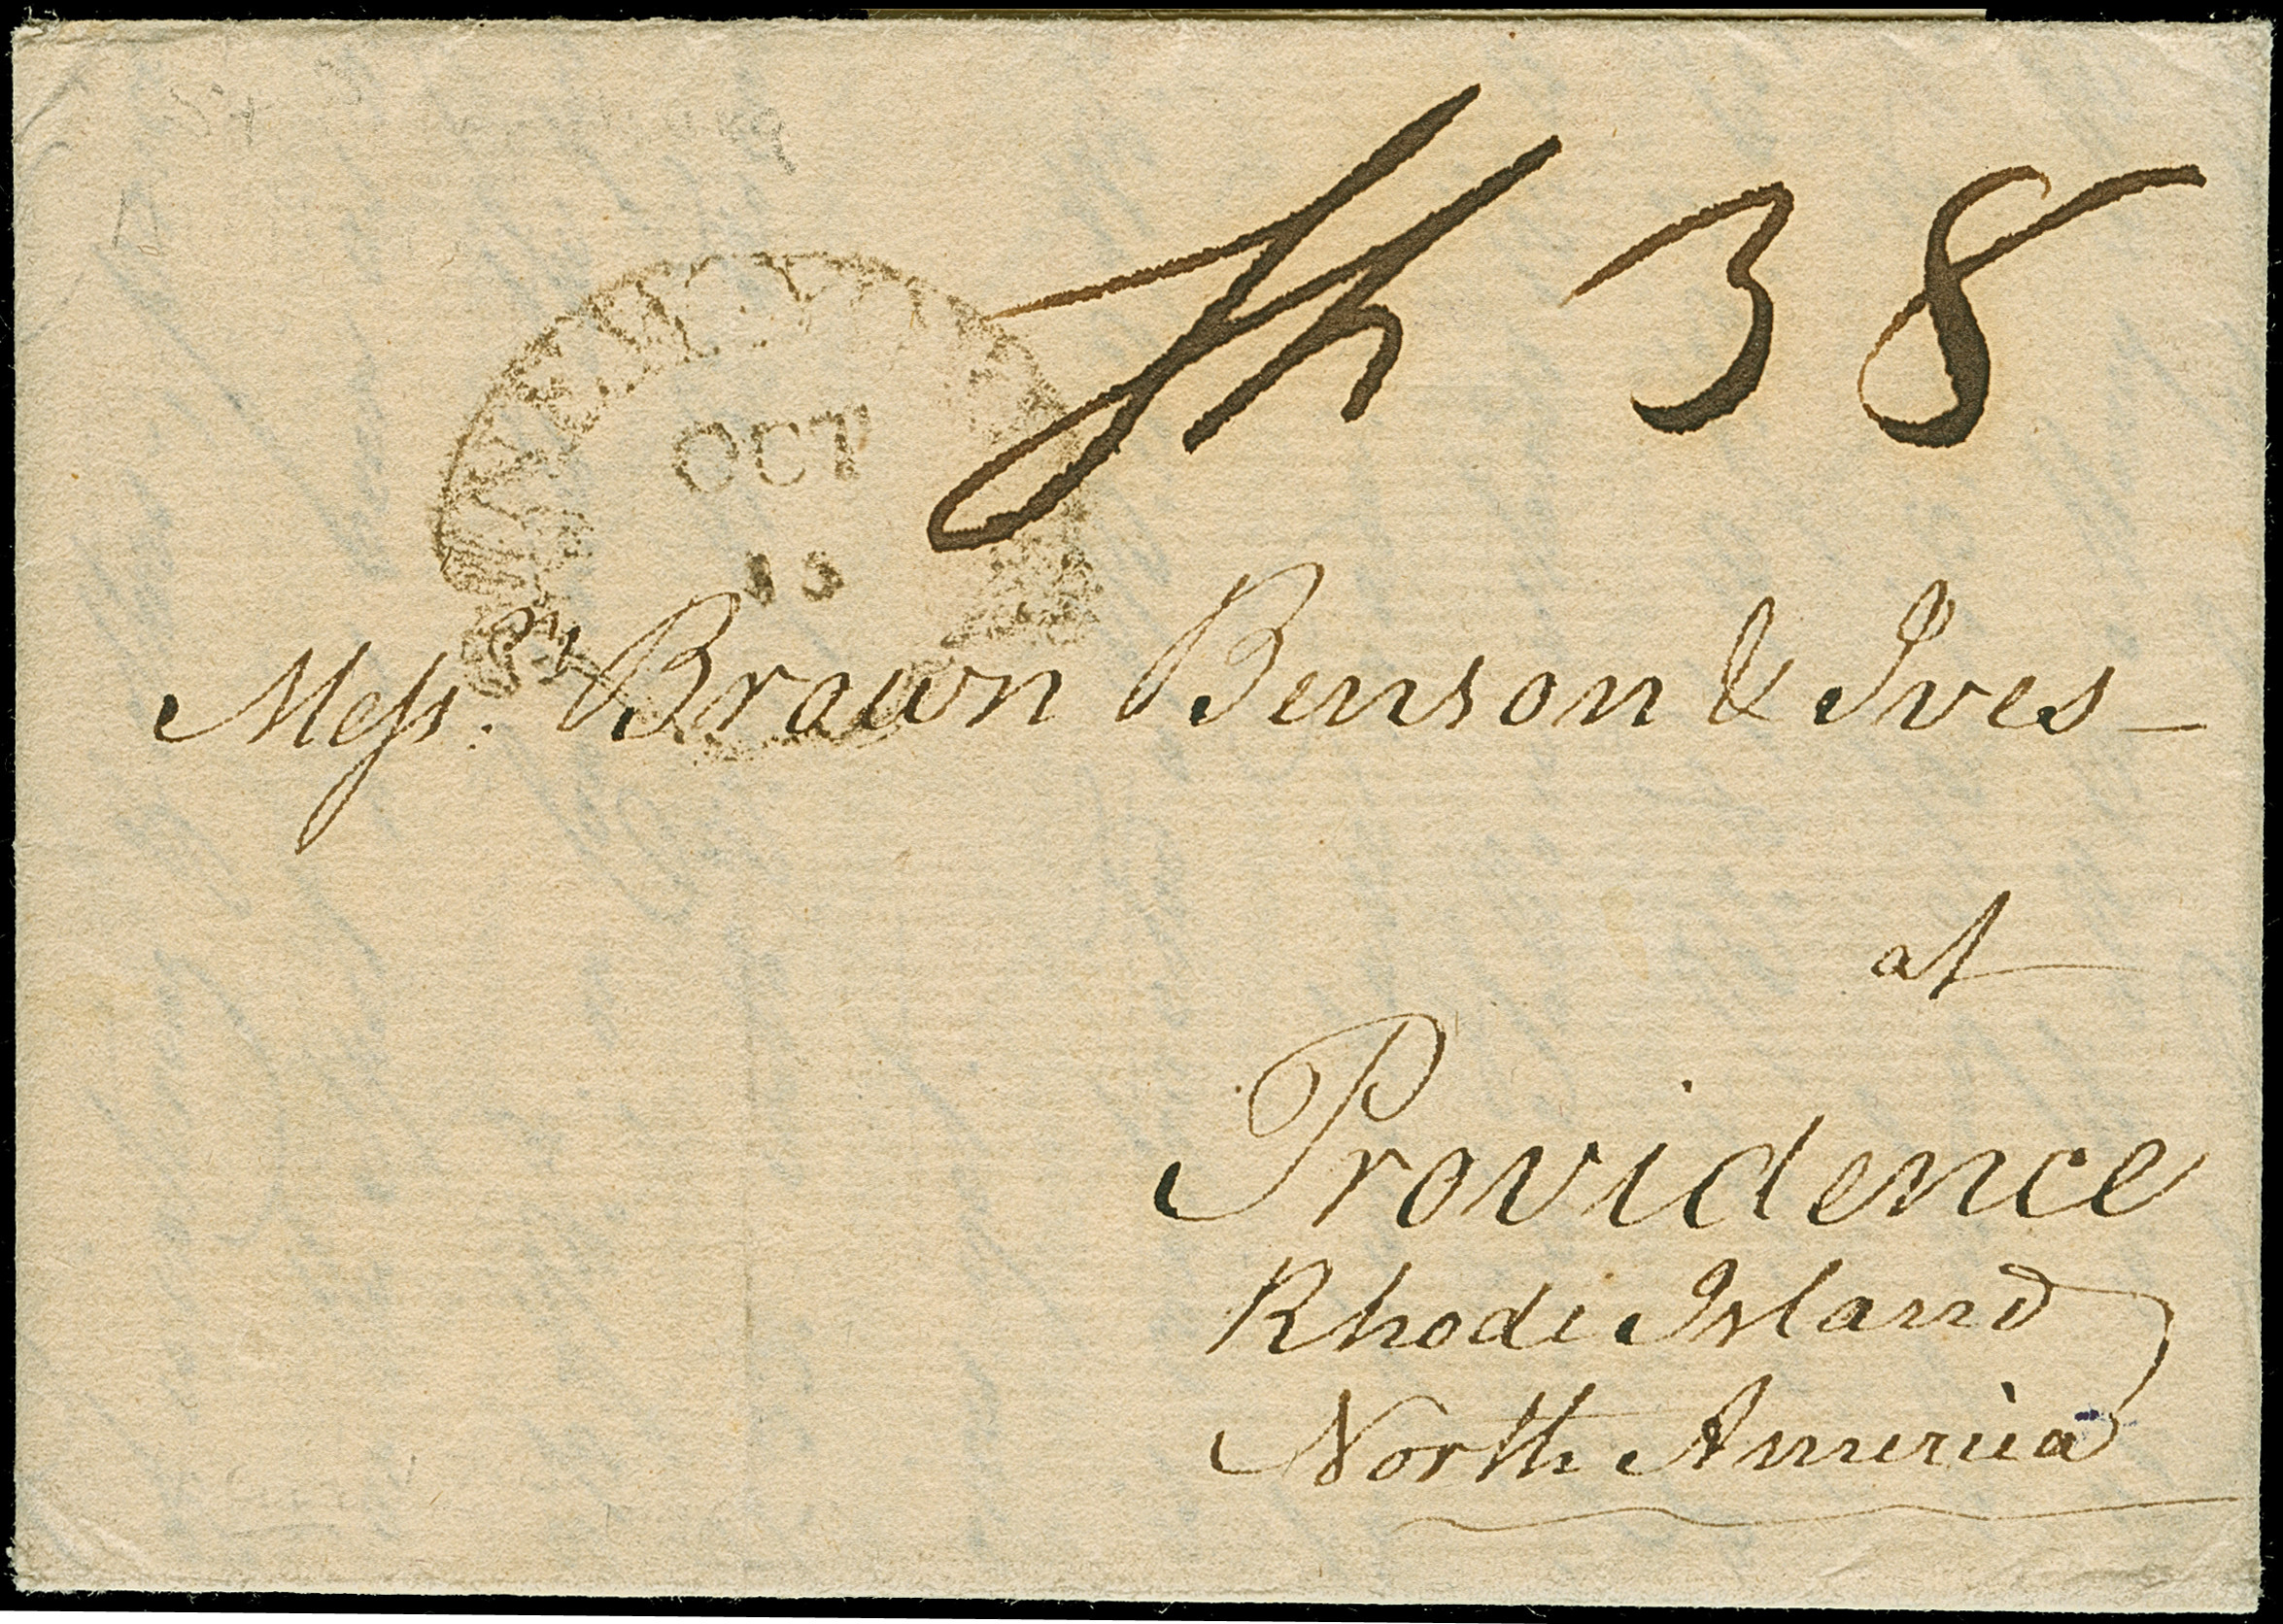 Sh 38
OCT
Messrs. Brown Benson & Ives
at
Providence
Rhode Island
North America